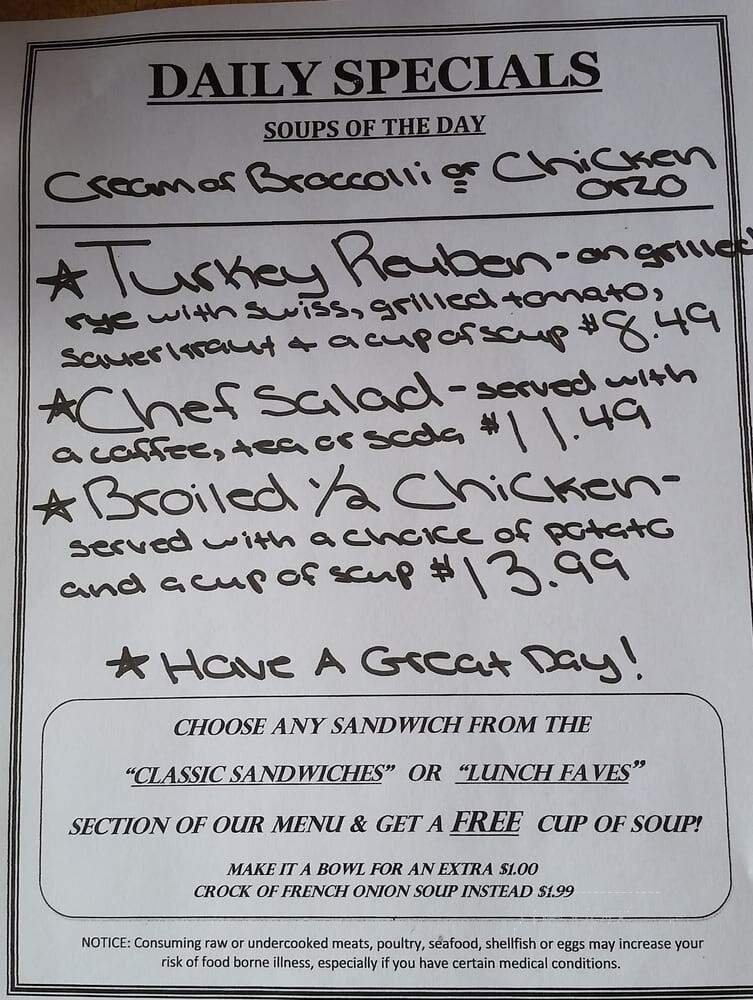 DAILY SPECIALS
SOUPS OF THE DAY
Cream of Broccolli or Chicken
Orzo
☆ Turkey Reuben - on grilled
rye with swiss, grilled tomato,
sauerkraut & a cup of soup $8.49
☆ Chef Salad - served with
a coffee, tea or soda $11.49
☆ Broiled 1/2 Chicken -
served with a choice of potato
and a cup of soup $13.99
☆ Have A Great Day!
CHOOSE ANY SANDWICH FROM THE
“CLASSIC SANDWICHES” OR “LUNCH FAVES”
SECTION OF OUR MENU & GET A FREE CUP OF SOUP!
MAKE IT A BOWL FOR AN EXTRA $1.00
CROCK OF FRENCH ONION SOUP INSTEAD $1.99
NOTICE: Consuming raw or undercooked meats, poultry, seafood, shellfish or eggs may increase your
risk of food borne illness, especially if you have certain medical conditions.